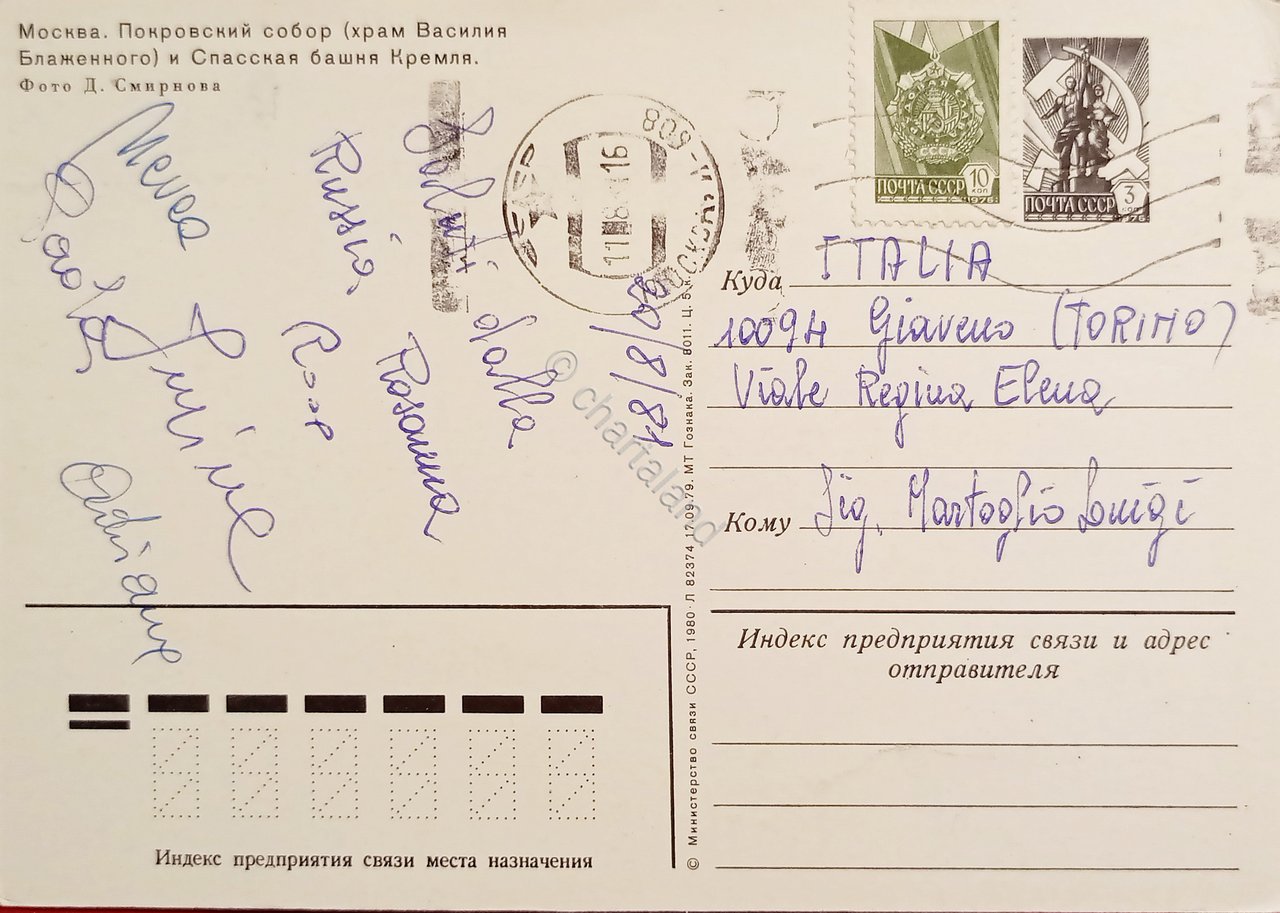 Москва. Покровский собор (храм Василия
Блаженного) и Спасская башня Кремля.
Фото Д. Смирнова
Saluti dalla
Russia.
Rosanna
Adriana
08/8/81
© chartaland
МОСКВА
809
11 8 16
ПОЧТА СССР 10 коп 1976
СССР
ПОЧТА СССР 3 коп 1976
Куда ITALIA
10094 Giaveno (TORINO)
Viale Regina Elena
Кому Sig. Martoglio Luigi
Индекс предприятия связи и адрес
отправителя
© Министерство связи СССР, 1980 · Л 82374 17.09.79. МТ Гознака. Зак. 8011. Ц. 5 к.
Индекс предприятия связи места назначения